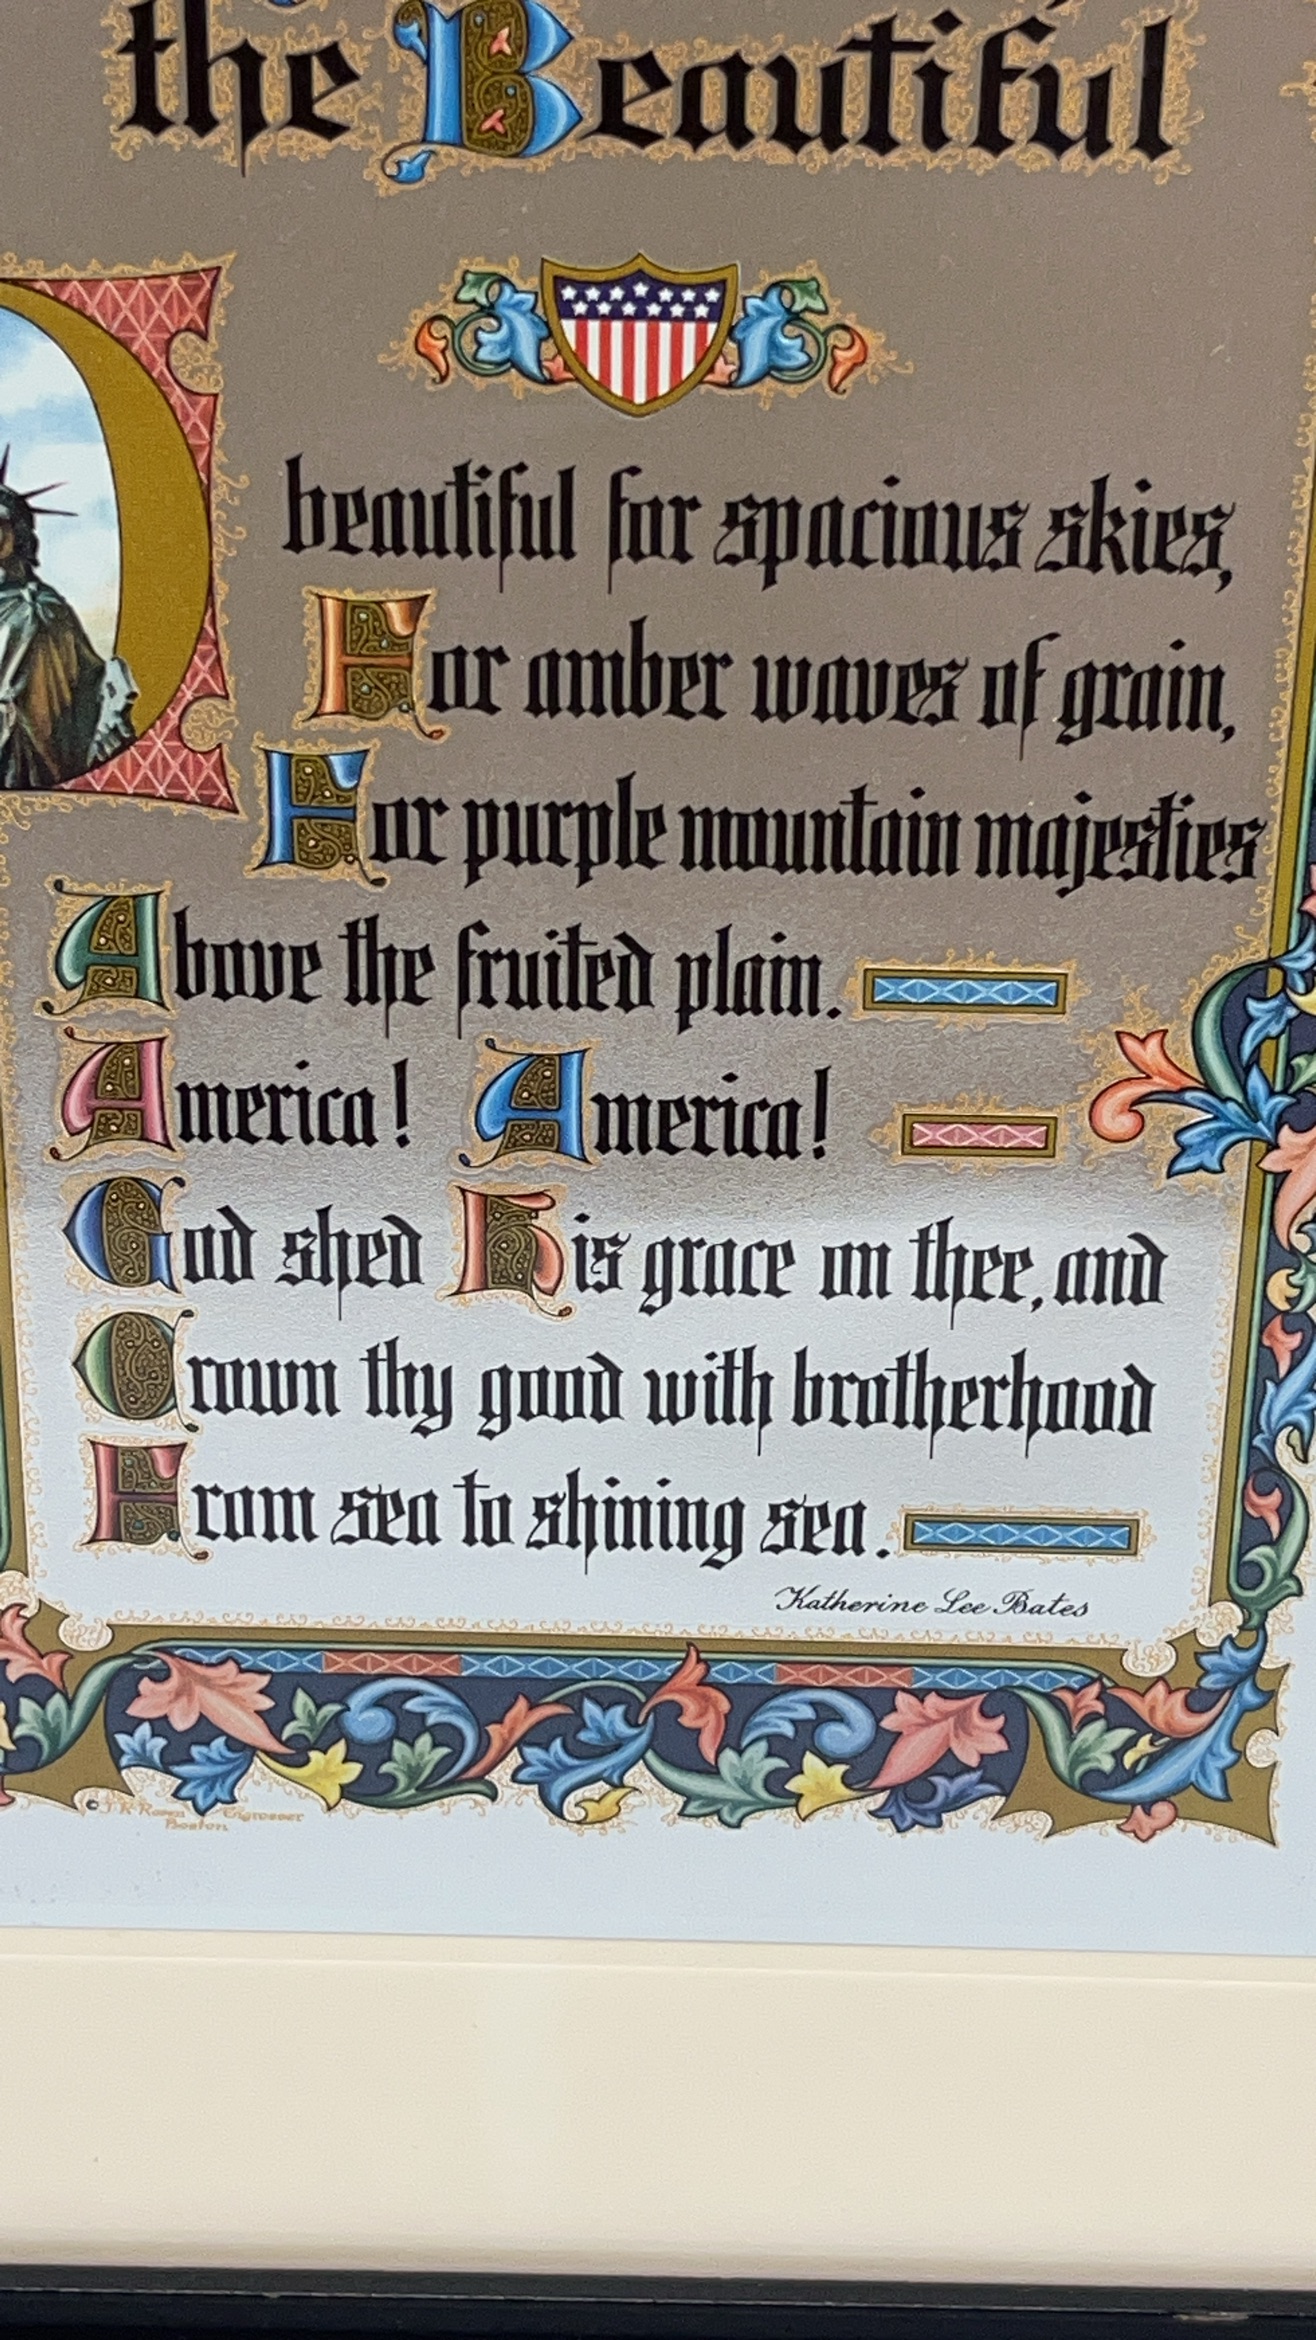 the Beautiful
O beautiful for spacious skies,
For amber waves of grain,
For purple mountain majesties
Above the fruited plain.
America! America!
God shed His grace on thee, and
Crown thy good with brotherhood
From sea to shining sea.
Katherine Lee Bates
© J. R. Rosen Engrosser
Boston